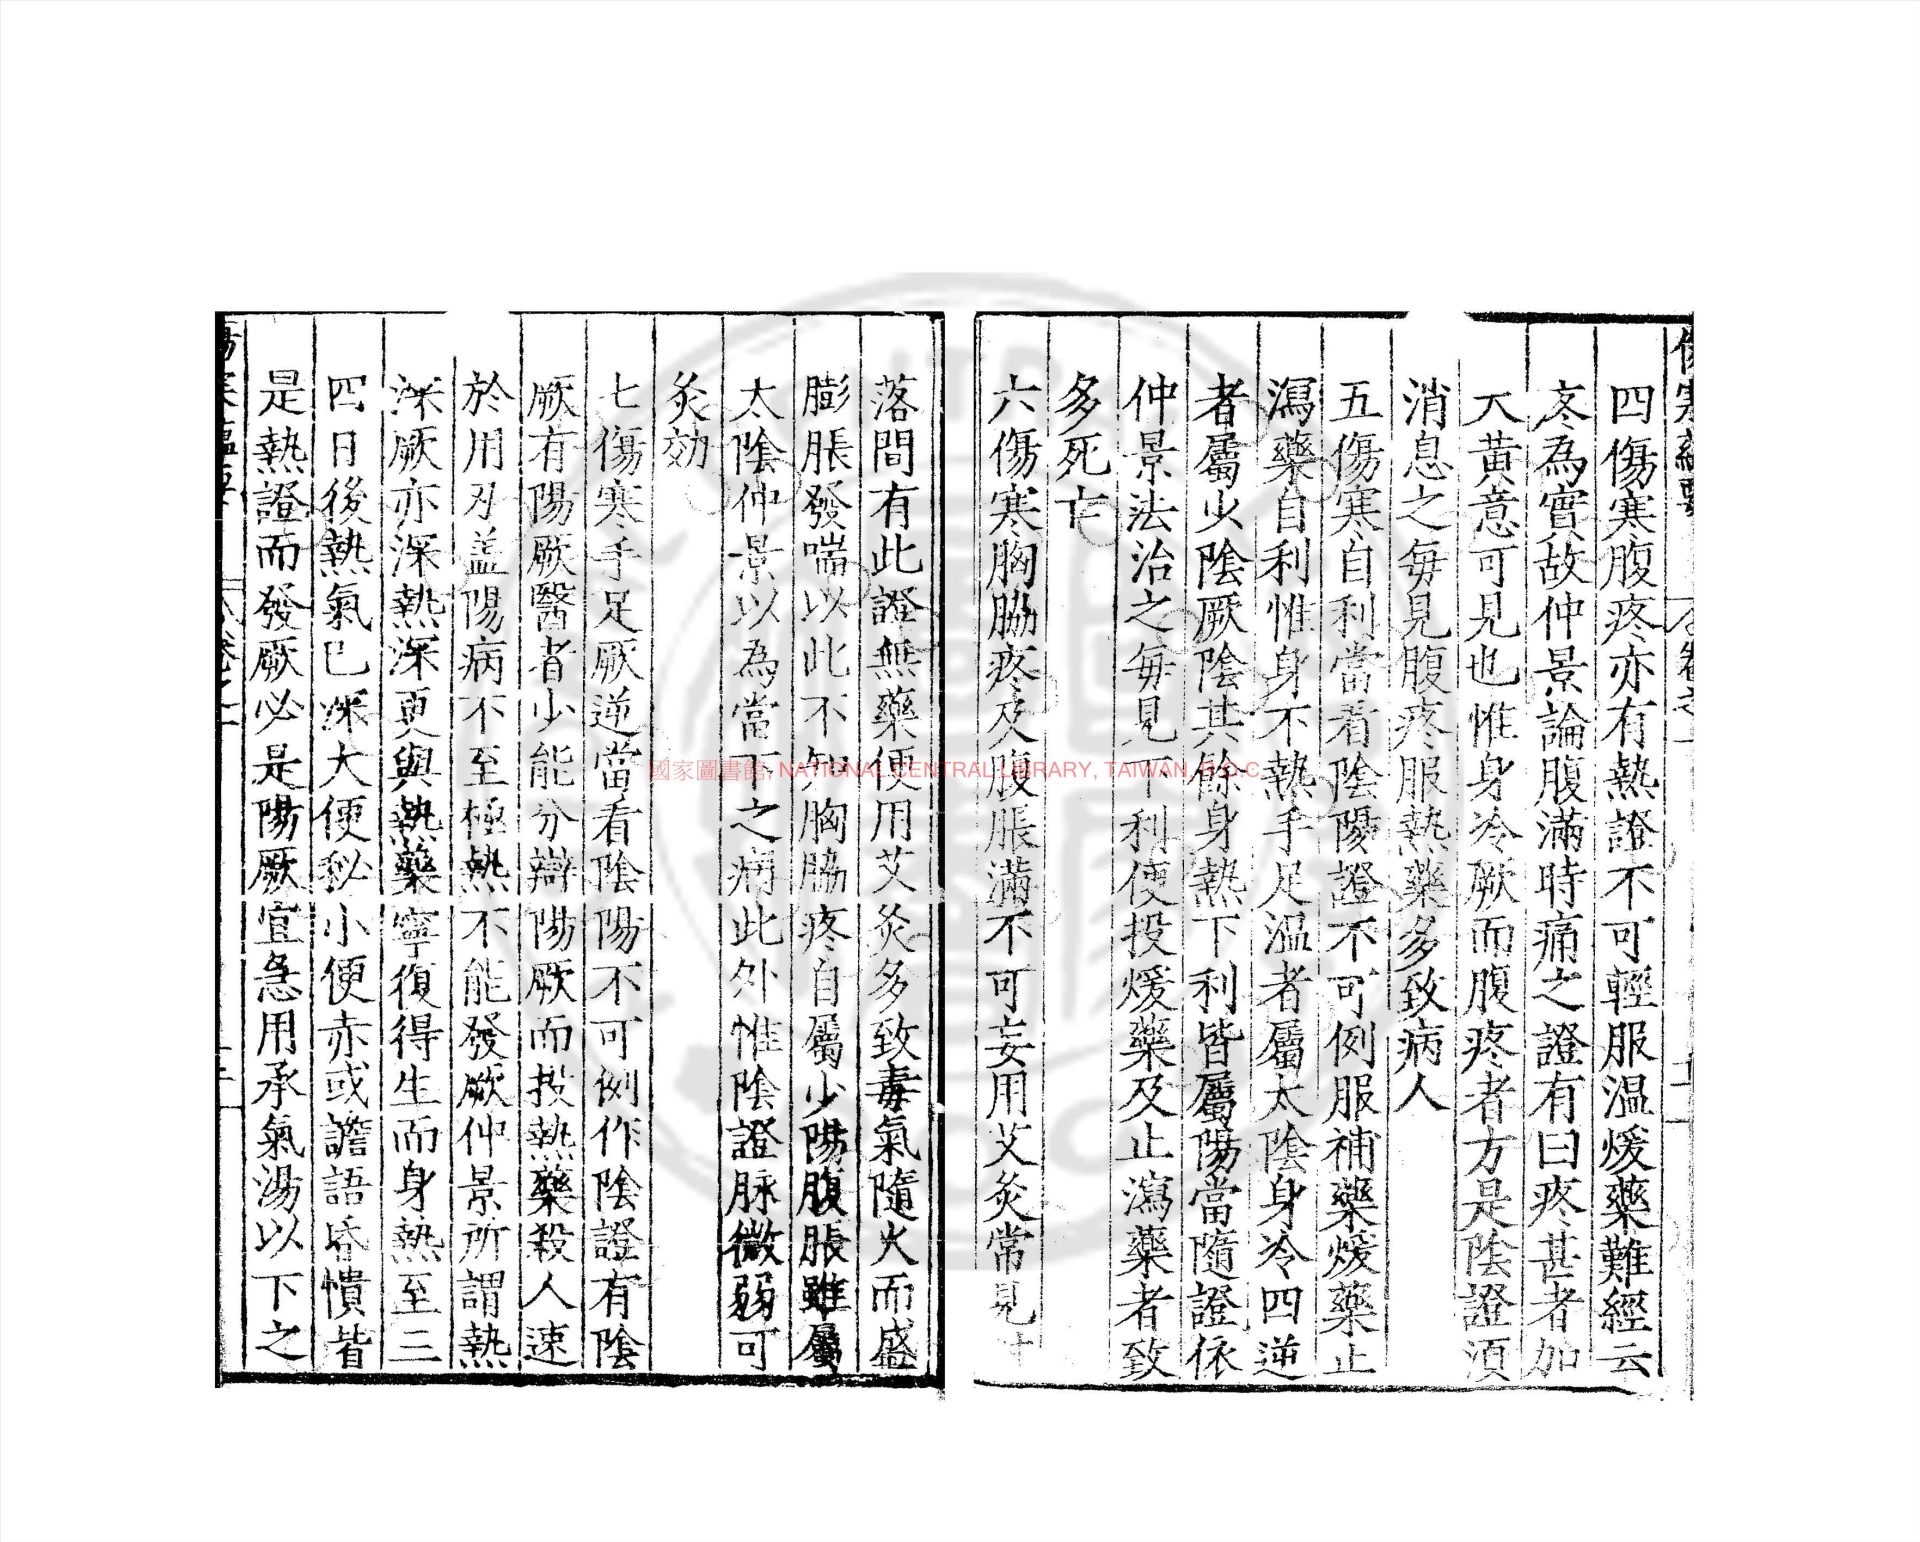 四傷寒腹疼亦有熱證不可輕服温煖藥難經云
疼為實故仲景論腹滿時痛之證有曰疼甚者加
大黃意可見也惟身冷厥而腹疼者方是陰證須
消息之每見腹疼服熱藥多致病人
五傷寒自利當看陰陽證不可例服補藥煖藥止
瀉藥自利惟身不熱手足温者屬太陰身冷四逆
者屬少陰厥陰其餘身熱下利皆屬陽當隨證依
仲景法治之每見下利便投煖藥及止瀉藥者致
多死亡
六傷寒胸脇疼及腹脹滿不可妄用艾灸常見村
落間有此證無藥便用艾灸多致毒氣隨火而盛
膨脹發喘以此不知胸脇疼自屬少陽腹脹雖屬
太陰仲景以為當下之病此外惟陰證脉微弱可
灸効
七傷寒手足厥逆當看陰陽不可例作陰證有陰
厥有陽厥醫者少能分辯陽厥而投熱藥殺人速
於用刄盖陽病不至極熱不能發厥仲景所謂熱
深厥亦深熱深更與熱藥寧復得生而身熱至三
四日後熱氣已深大便秘小便赤或譫語昏憒皆
是熱證而發厥必是陽厥宜急用承氣湯以下之
國家圖書館, NATIONAL CENTRAL LIBRARY, TAIWAN, R.O.C.